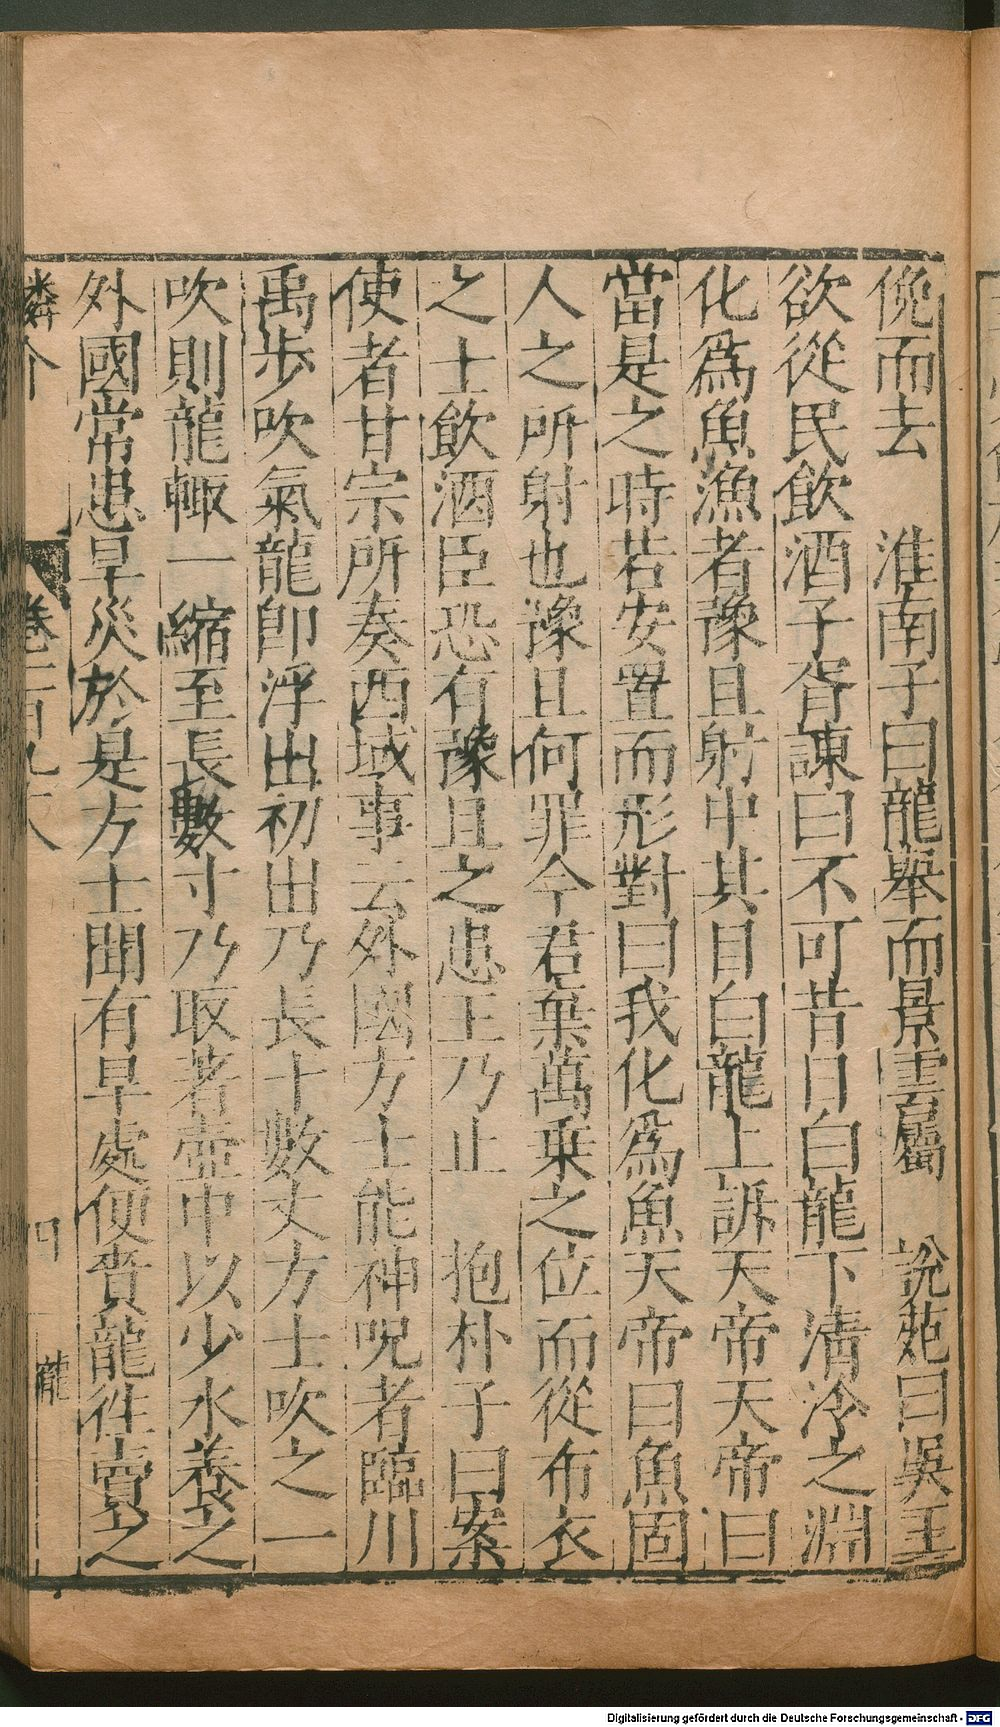 俛而去　淮南子曰龍舉而景雲屬　說苑曰吳王
欲從民飲酒子胥諫曰不可昔日白龍下清泠之淵
化爲魚漁者豫且射中其目白龍上訴天帝天帝曰
當是之時若安置而形對曰我化爲魚天帝曰魚固
人之所射也豫且何罪今君棄萬乗之位而從布衣
之士飲酒臣恐有豫且之患王乃止　抱朴子曰案
使者甘宗所奏西域事云外國方士能神呪者臨川
禹步吹氣龍卽浮出初出乃長十數丈方士吹之一
吹則龍輙一縮至長數寸乃取著壺中以少水養之
外國常患旱災於是方士聞有旱處便賫龍往賣之
鱗介　卷一百九十八　四　龍
Digitalisierung gefördert durch die Deutsche Forschungsgemeinschaft - DFG